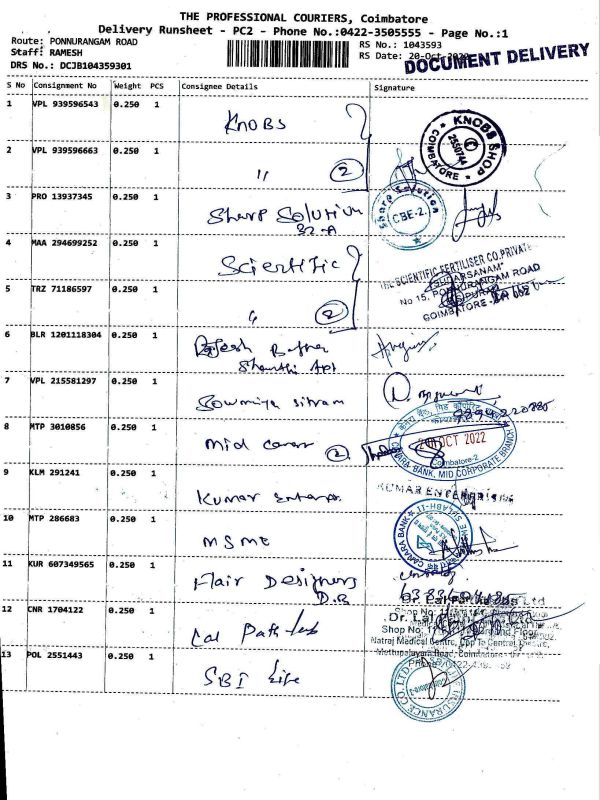 THE PROFESSIONAL COURIERS, Coimbatore
Delivery Runsheet - PC2 - Phone No.:0422-3505555 - Page No.:1
Route: PONNURANGAM ROAD
Staff: RAMESH
DRS No.: DCJB104359301
RS No.: 1043593
RS Date: 20-Oct-2022
DOCUMENT DELIVERY
S No Consignment No Weight PCS Consignee Details Signature
1 VPL 939596543 0.250 1 KNOBS
KNOBS SHOP
2550744
COIMBATORE
2 VPL 939596663 0.250 1 " 2
3 PRO 13937345 0.250 1 Sharp Solution
Sharp Solution
CBE-2.
4 MAA 294699252 0.250 1 Scientific
THE SCIENTIFIC FERTILISER CO.PRIVATE
"SUDARSANAM"
No 15, PONNURANGAM ROAD
COIMBATORE - 641 002
5 TRZ 71186597 0.250 1 " 2
6 BLR 1201118304 0.250 1
Shanthi Apt
7 VPL 215581297 0.250 1 Sowmiya sitram
8 MTP 3010856 0.250 1 Mid 2
20 OCT 2022
Coimbatore-2
CANARA BANK, MID CORPORATE BRANCH
9 KLM 291241 0.250 1 Kumar
KUMAR ENTERPRISES
10 MTP 286683 0.250 1 MSME
CANARA BANK
11 KUR 607349565 0.250 1 Flair Designers
D.B
12 CNR 1704122 0.250 1 Lal Path
Dr. Lal
Shop No:
Natraj Medical Centre, Opp To Central Theatre,
Mettupalayam Road, Coimbatore
13 POL 2551443 0.250 1 SBI Life
INSURANCE CO. LTD.